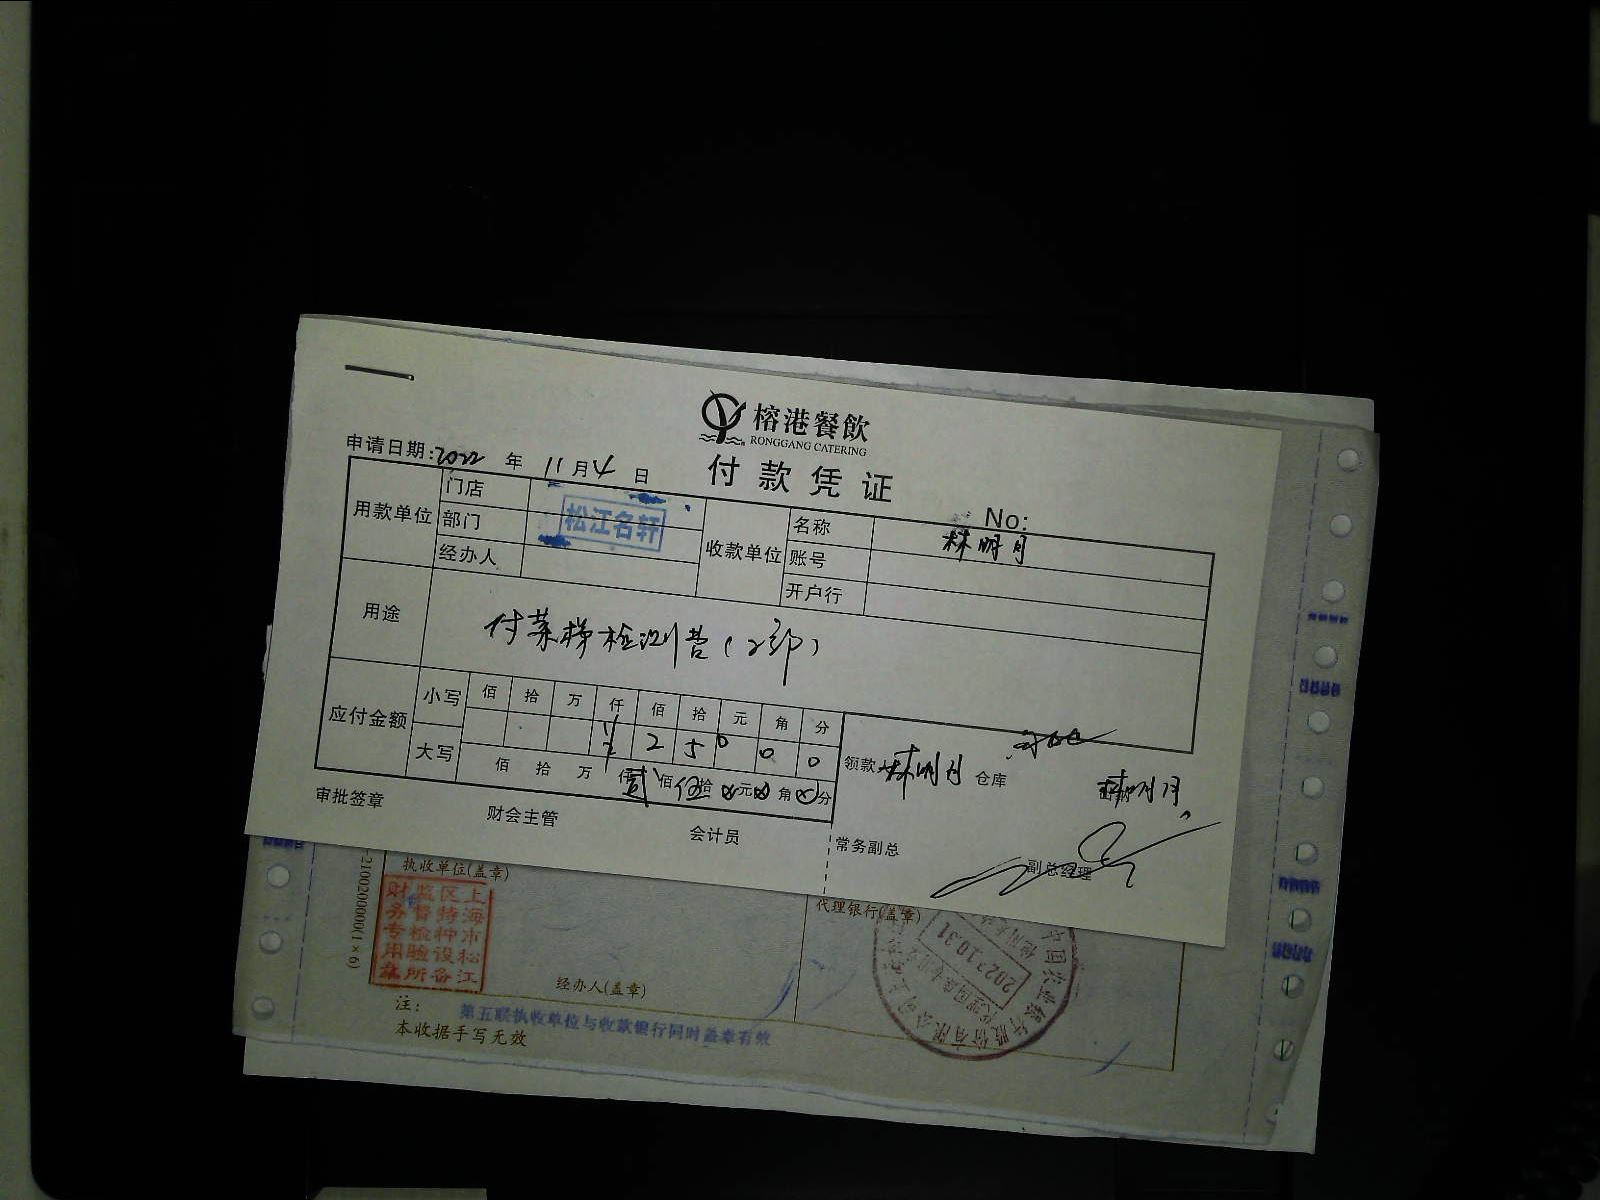 榕港餐飲
RONGGANG CATERING
付款凭证
申请日期:2022年11月4日
No:
用款单位
门店
部门
经办人
松江名轩
收款单位
名称 林明月
账号
开户行
用途
付菜梯检测费(2部)
应付金额
小写
佰 拾 万 仟 佰 拾 元 角 分
2 5 0 0 0
大写
佰 拾 万 仟 贰佰 伍拾 元 角 分
领款 林明月 仓库
林明月
审批签章
财会主管
会计员
常务副总
副总经理
执收单位(盖章)
上海市松江区特种设备监督检验所财务专用章
经办人(盖章)
代理银行(盖章)
2022.10.31
注:
本收据手写无效
第五联执收单位与收款银行同时盖章有效